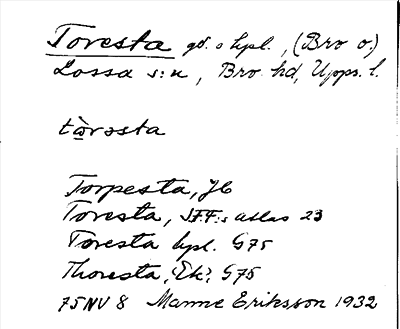 Toresta gd. o hpl., (Bro o.)
Lossa s:n, Bro hd, Upps. l.
tòrəsta
Torpesta, Jb
Toresta, SFF:s atlas 23
Toresta hpl. G75
Thoresta, Ek? G75
75NV8 Manne Eriksson 1932